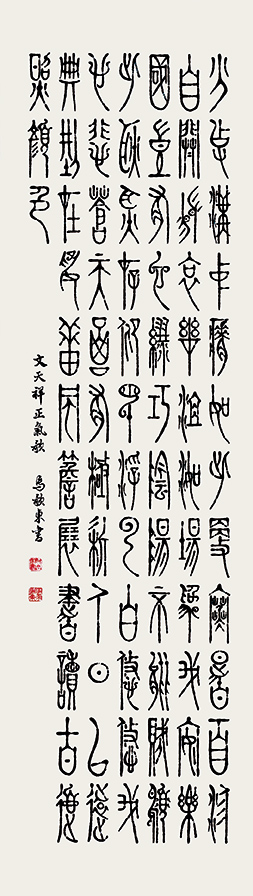 分作溝中瘠如此再寒暑百沴
自闢易哀哉沮洳場為我安樂
國豈有他繆巧陰陽不能賊顧
此耿耿存仰視浮雲白悠悠我
心悲蒼天曷有極哲人日已遠
典刑在夙昔風簷展書讀古道
照顏色
文天祥正氣歌 馬東書